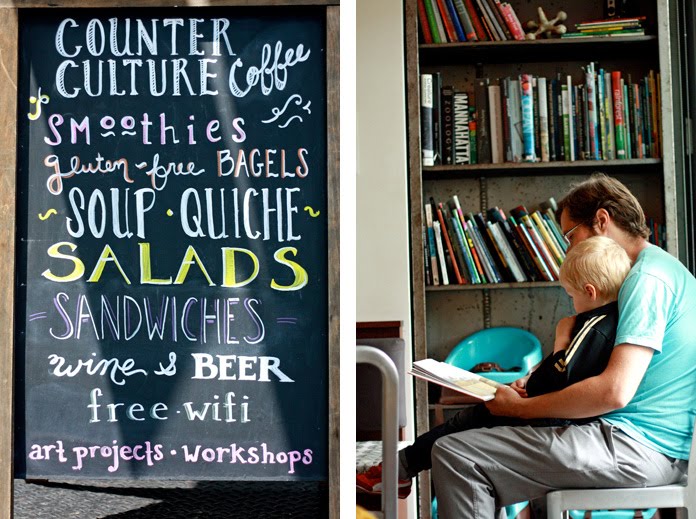 COUNTER
CULTURE Coffee
SMOOTHIES
gluten-free BAGELS
SOUP · QUICHE
SALADS
- SANDWICHES -
wine & BEER
free · wifi
art projects · workshops
MANNAHATTA
ZOOLOGY